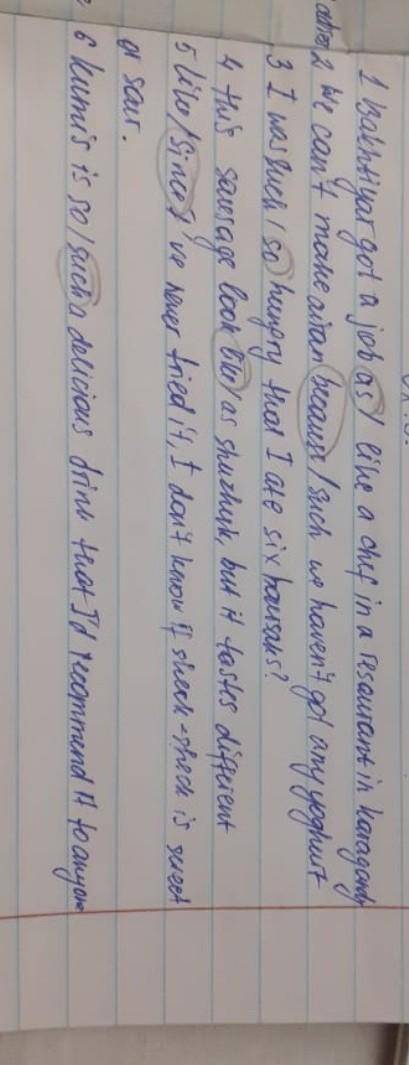 1 Bakhtiyar got a job as / like a chef in a resaurant in karagandy
2 We can't make airan because / such we haven't got any yoghurt
3 I was such / so hungry that I ate six baursaks?
4 this sausage look like / as shuzhuk, but it tastes different
5 like / since I've never tried it, I don't know if sheck-sheck is sweet
or sour.
6 kumis is so / such a delicious drink that I'd recommend it to anyone